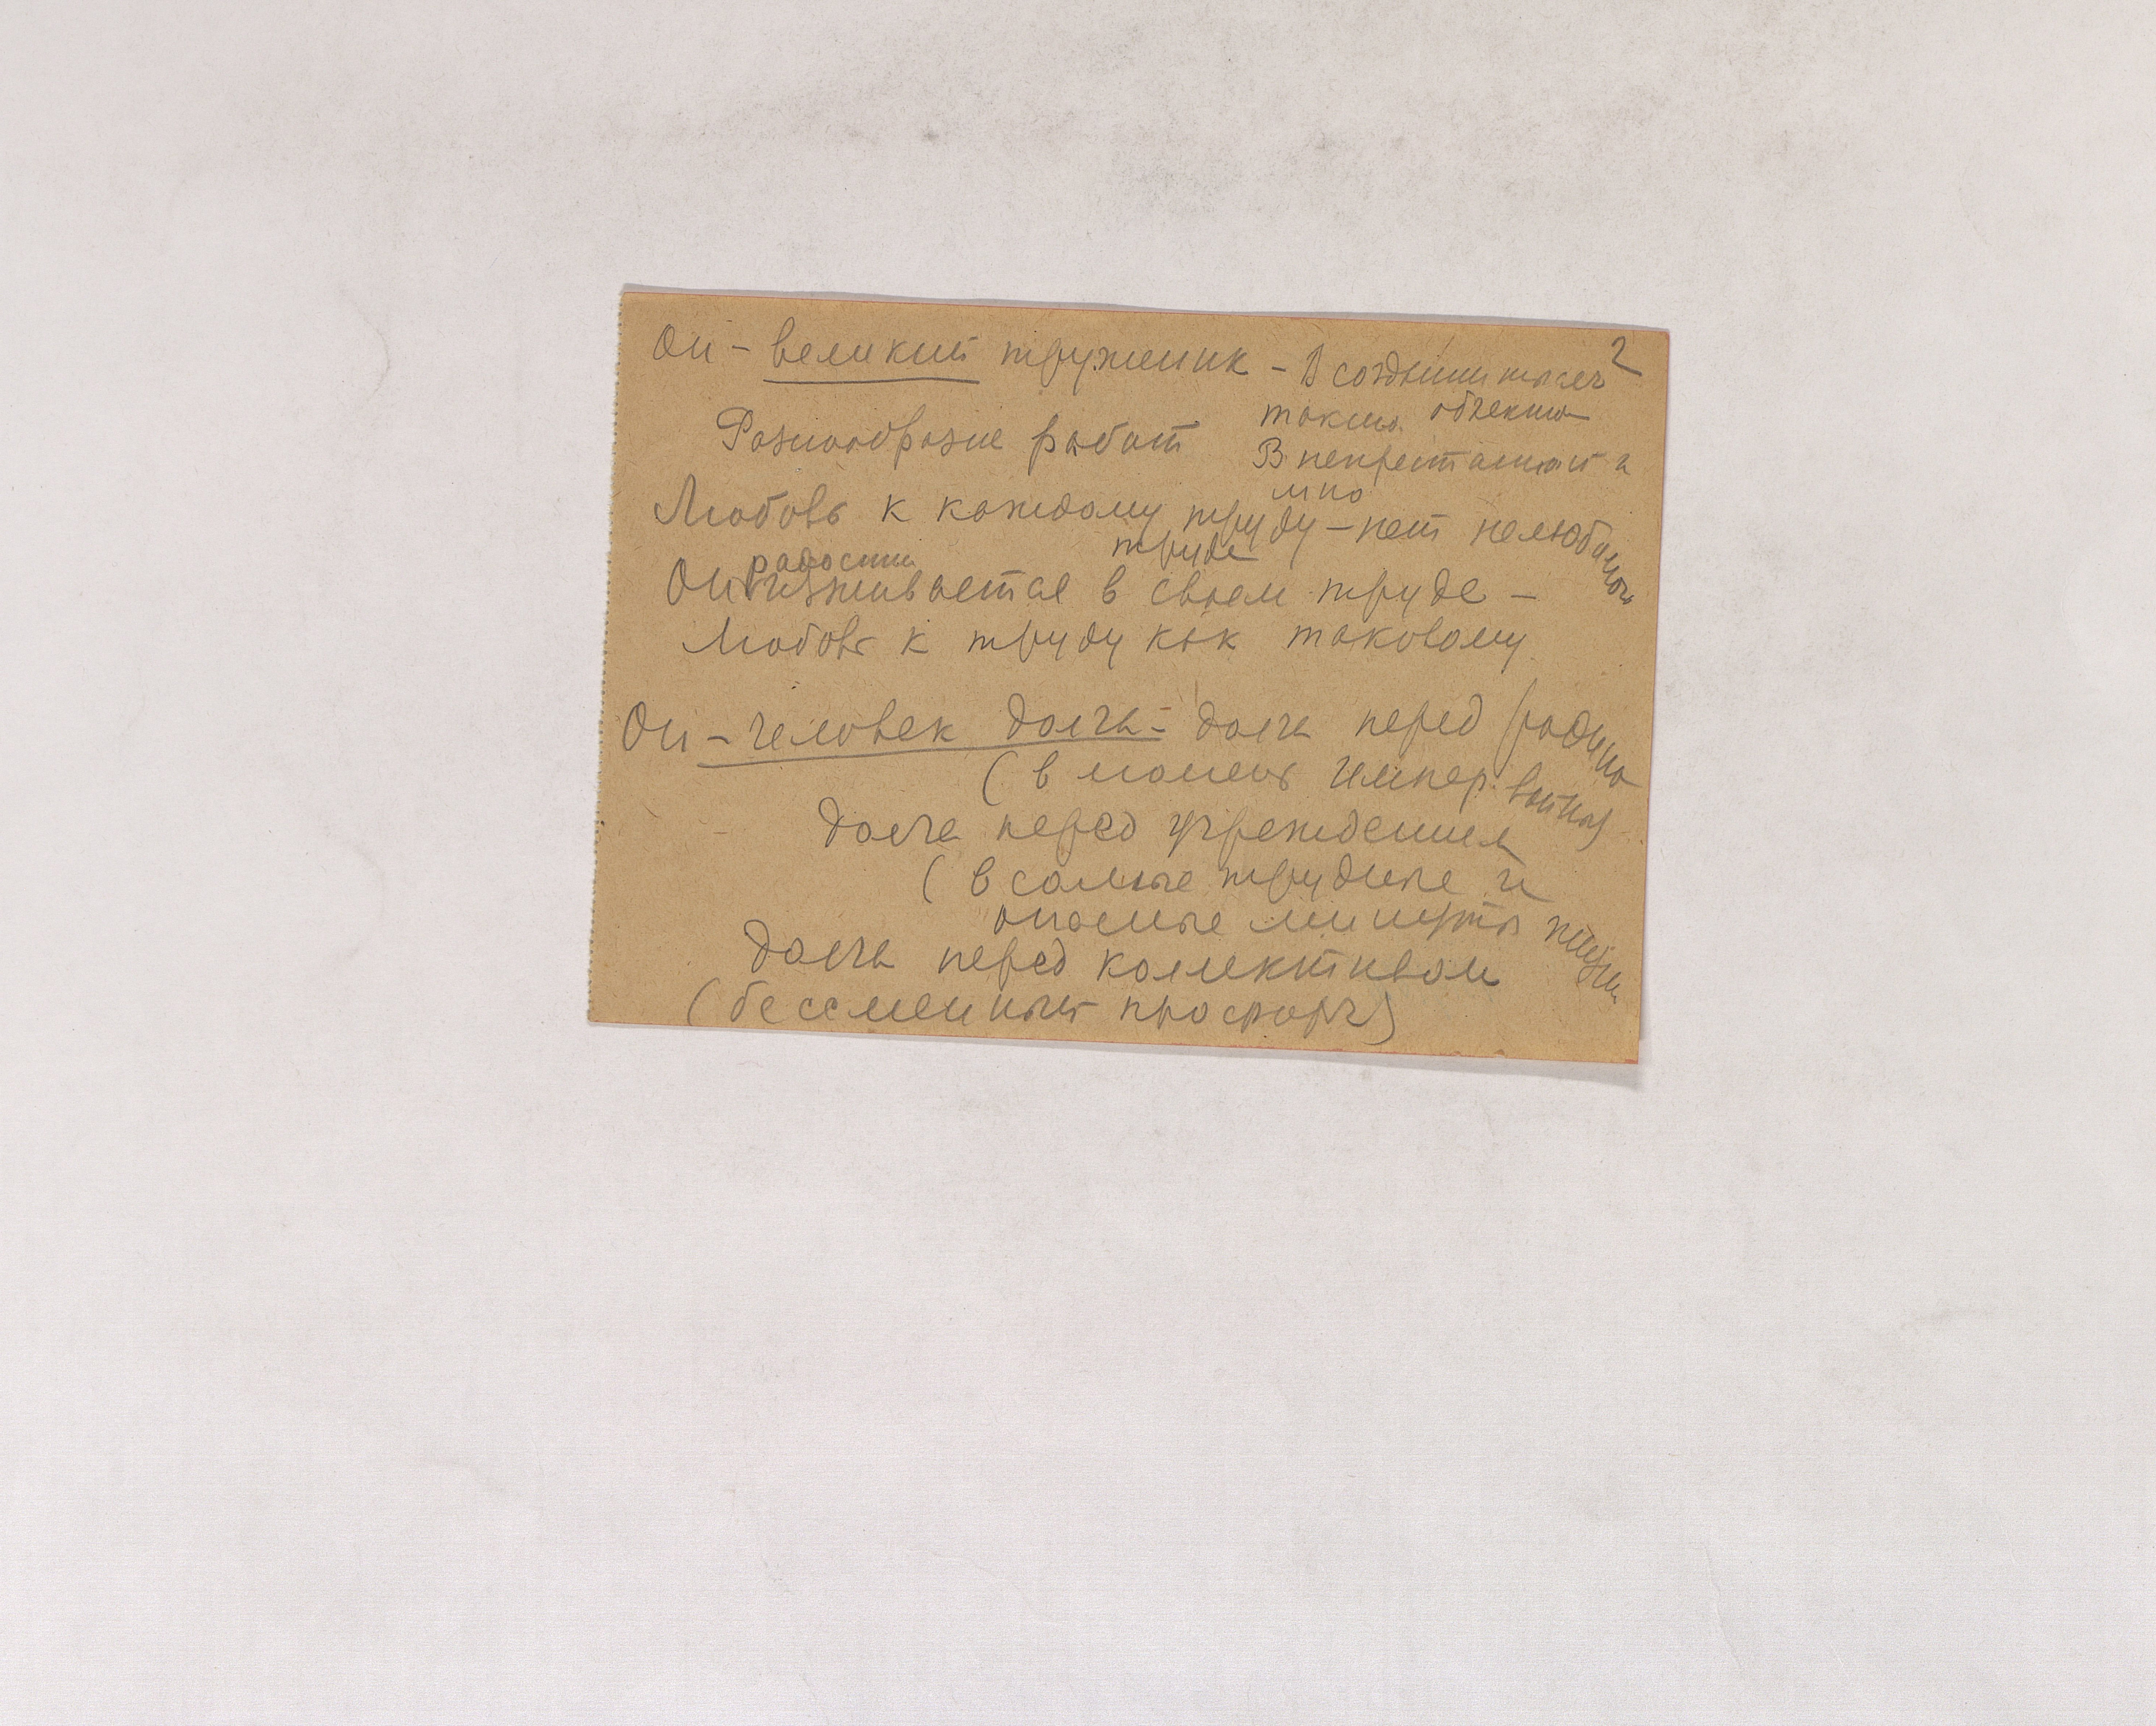 2
Он – великий труженик – В создании тысяч
таких объектов
Разнообразие работ
В непрестанной и
Любовь к каждому труду – нет нелюбимого
труда
радостно
Он изживается в своем труде –
Любовь к труду как таковому
Он – человек долга – долга перед родиной
(в момент импер. войны)
Долга перед учреждением
(в самые трудные и
опасные минуты жизни
Долга перед коллективом
(бессменный профорг)